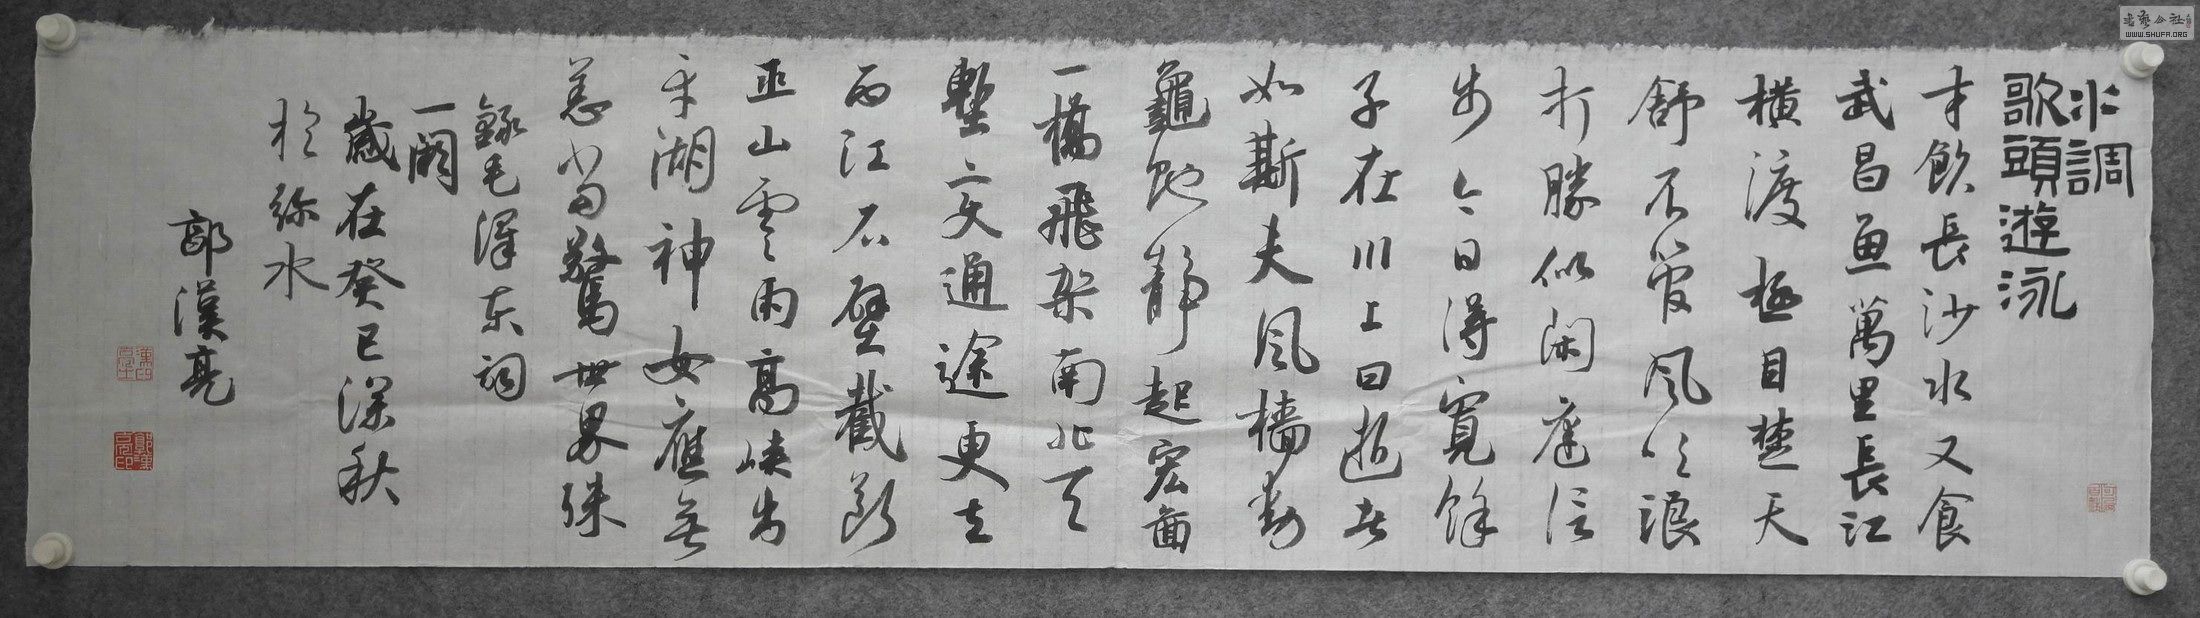 水調
歌頭遊泳
才飲長沙水又食
武昌魚萬里長江
横渡極目楚天
舒不管風吹浪
打勝似闲庭信
步今日得寬餘
子在川上曰逝者
如斯夫風檣動
龜蛇靜起宏圖
一橋飛架南北天
塹变通途更立
西江石壁截断
巫山雲雨高峽出
平湖神女應無
恙當驚世界殊
錄毛澤东詞
一闋
歲在癸巳深秋
於弥水
郭漢亮
郭漢亮印
書藝公社
WWW.SHUFA.ORG